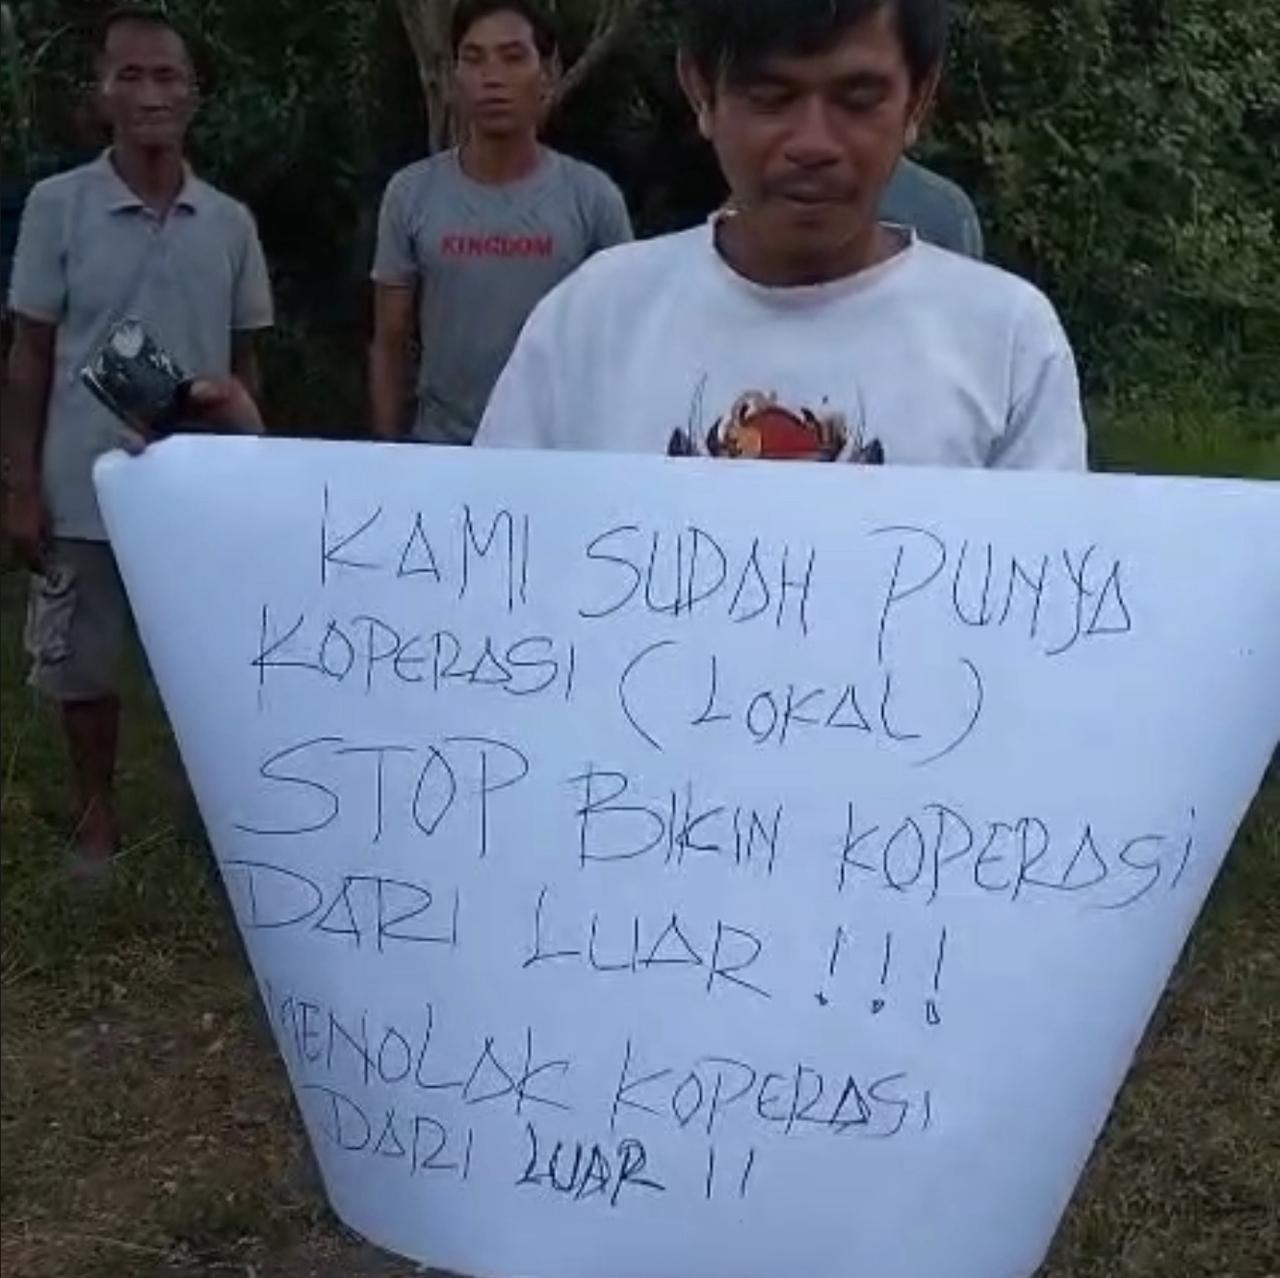 KINGDOM
KAMI SUDAH PUNYA
KOPERASI (LOKAL)
STOP BIKIN KOPERASI
DARI LUAR !!!
MENOLAK KOPERASI
DARI LUAR !!